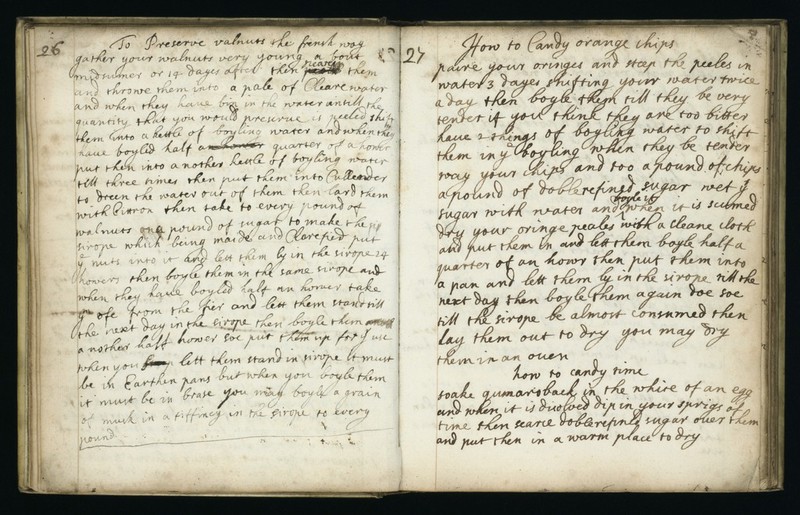 26
To Preserve walnuts the french way
gather your walnuts very young a bout
midsumer or 14 dayes after then scarce them
and throwe them into a pale of Cleare water
and when they have bin in the water antill the
quantity that you would preserve is peeled shift
them into a kettle of boyling water and when they
have boyled half a quarter of a hower
put then into a nother kettle of boyling water
till three times then put them into Cullender
to dreen the water out of them then lard them
with Citron then take to every pound of
walnuts one pound of sugar to make the
sirope which being maide and Clarefied put
yᵉ nuts into it and lett them ly in the sirope 24
howers then boyle them in the same sirope and
when they have boyled half an hower take
yᵐ ofe from the fier and lett them stand till
the next day in the sirope then boyle them
a nother half hower soe put them up for yʳ use
when you lett them stand in sirope it must
be in Earthen pans but when you boyle them
it must be in brase you may boyle a grain
of musk in a tiffiney in the sirope to every
pound
27
How to Candy orange chips
paire your oringes and steep the peeles in
water 3 dayes shifting your water twice
a day then boyle them till they be very
tender if you think they are too bitter
have 2 things of boyling water to shift
them in yᵉ boyling when they be tender
way your chips and too a pound of chips
a pound of doblerefined sugar wet yᵉ
sugar with water and boyle it when it is scumed
dry your oringe peales with a cleane cloth
and put them in and lett them boyle half a
quarter of an howr then put them into
a pan and lett them ly in the sirope till the
next day then boyle them again doe soe
till the sirope be almost consumed then
lay them out to dry you may dry
them in an oven
how to candy time
soake gumarsback in the white of an egg
and when it is dissolved dip in your sprigs of
time then searce doblerefined sugar over them
and put then in a warm place to dry